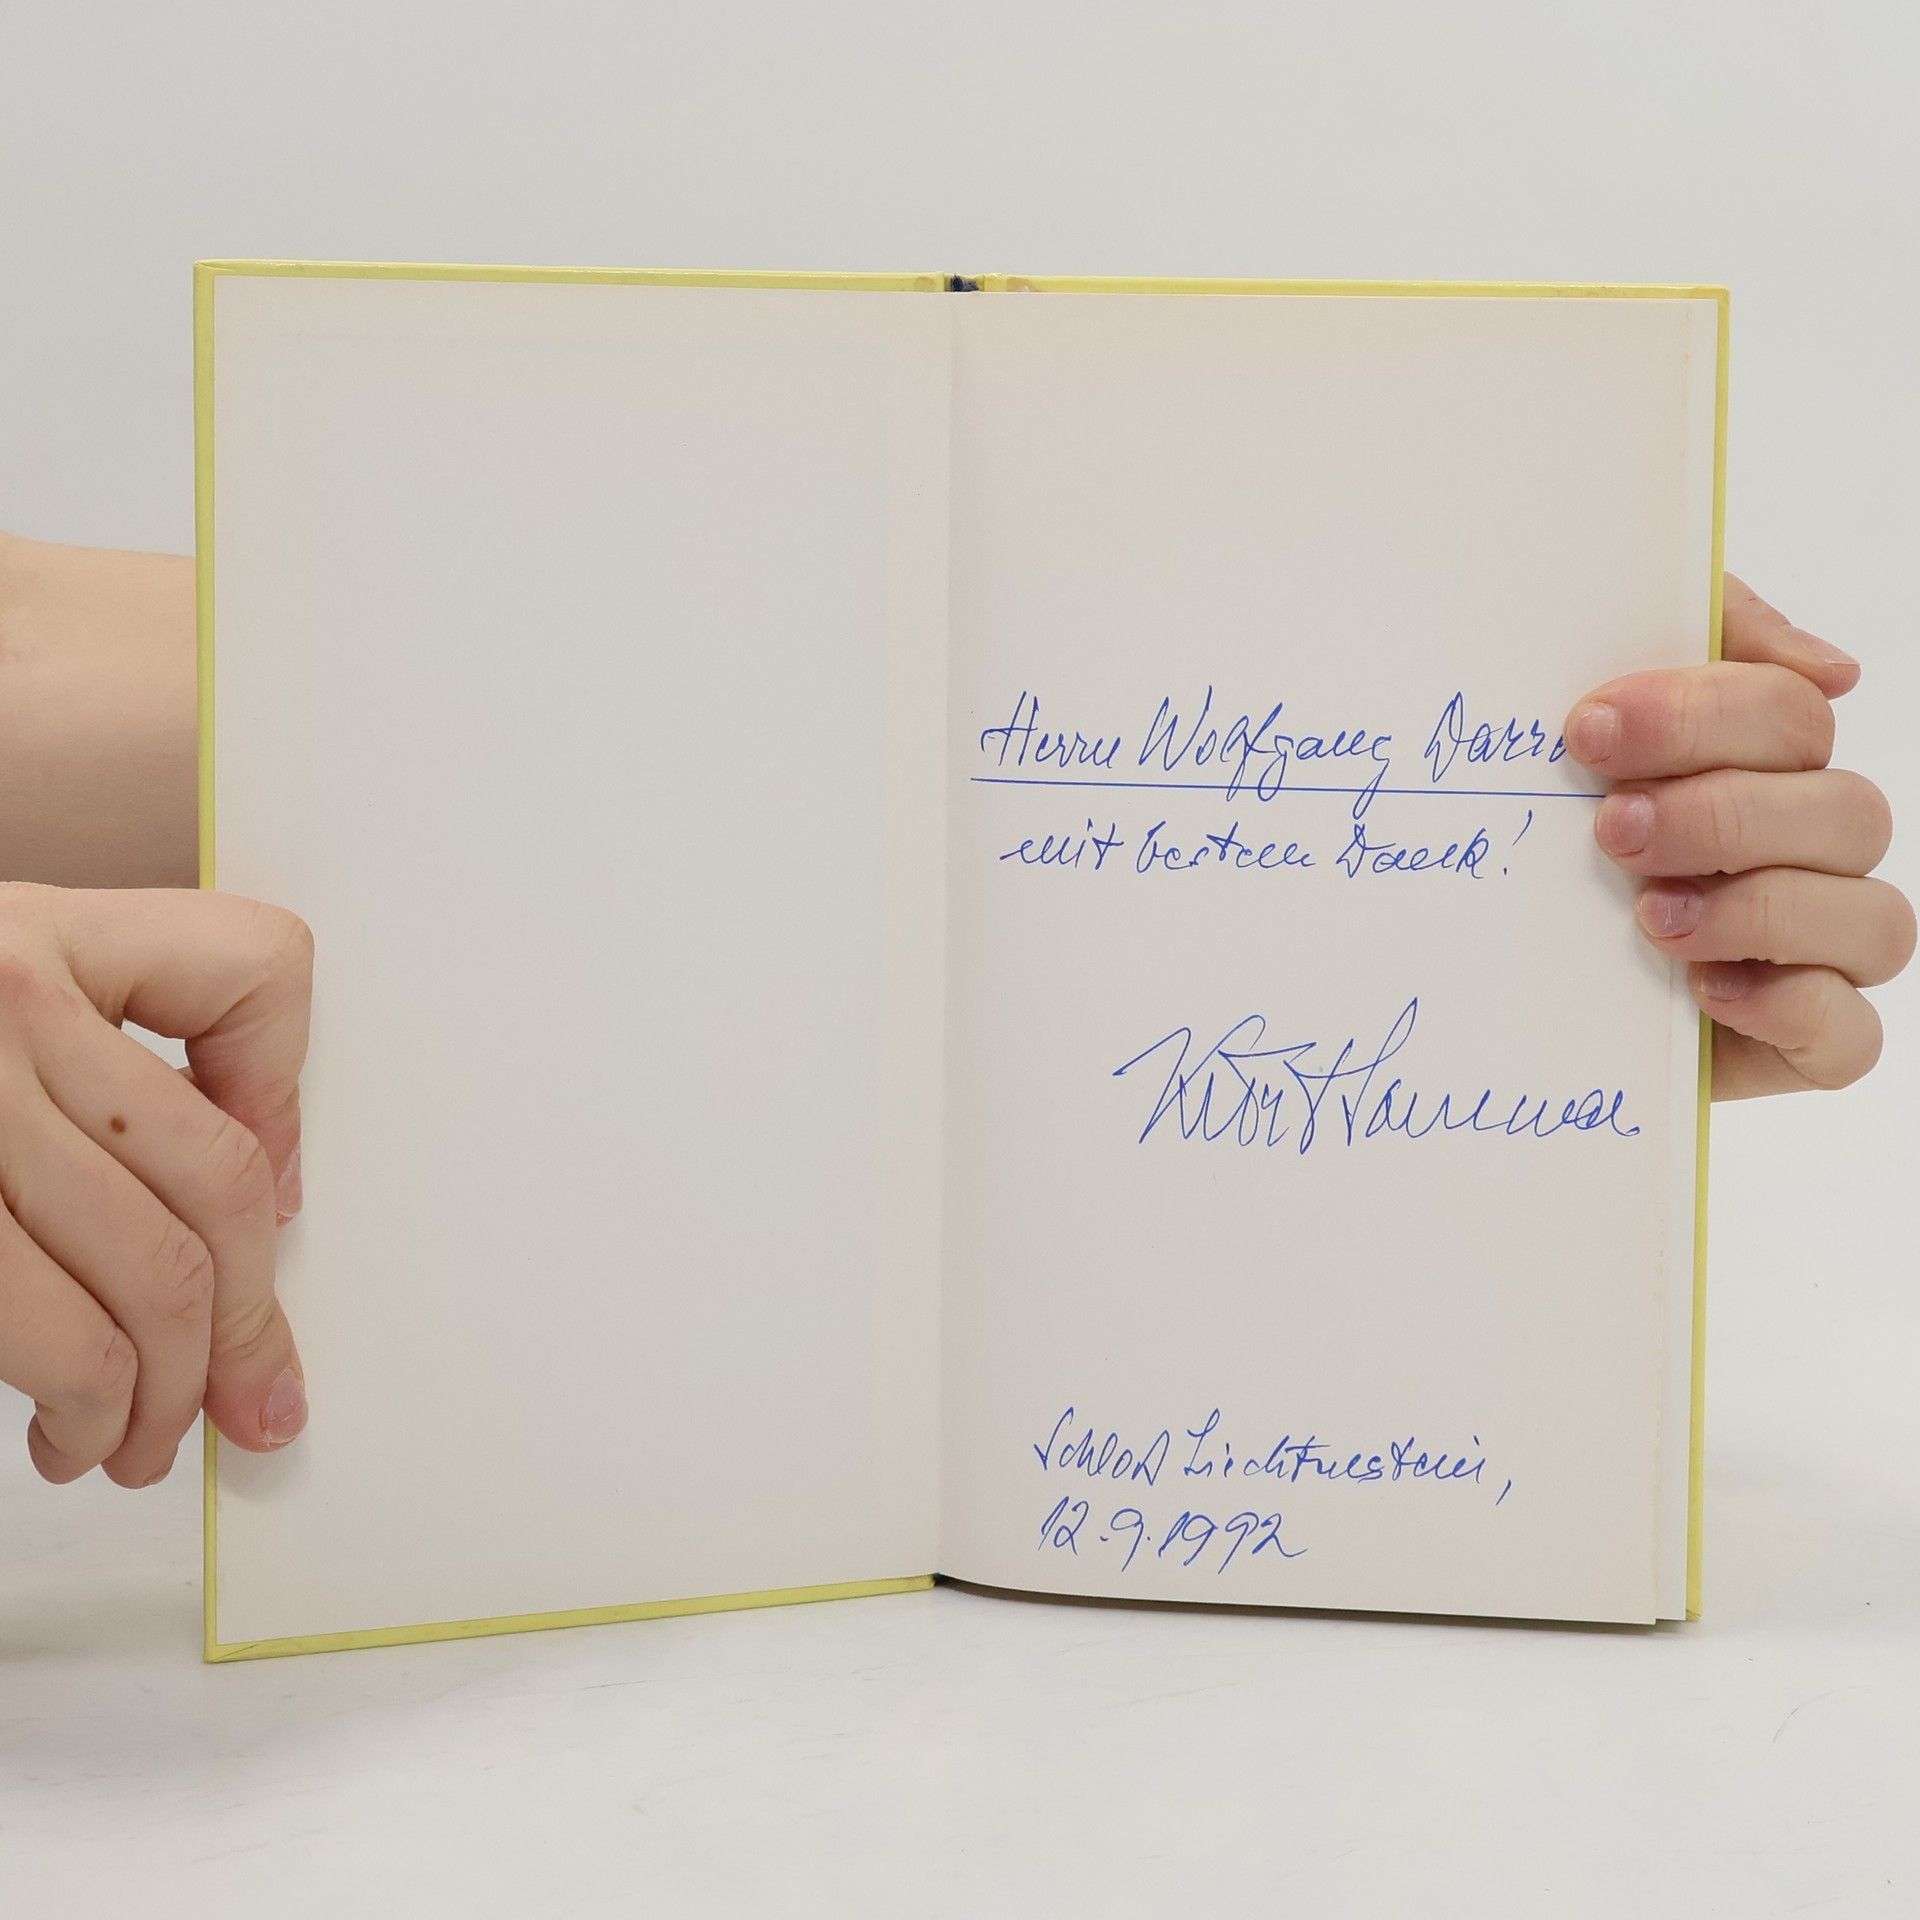 Herrn Wolfgang Darr
mit bestem Dank!
Schloß Liechtenstein,
12.9.1992